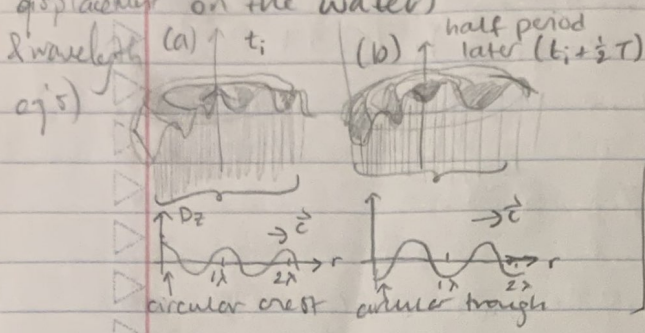 displacement on the water)
& wavelength
eq's)
(a) tᵢ
(b) half period
later (tᵢ + ½ T)
D_Z
→ c⃗
1λ 2λ r
circular crest
→ c⃗
1λ 2λ r
circular trough